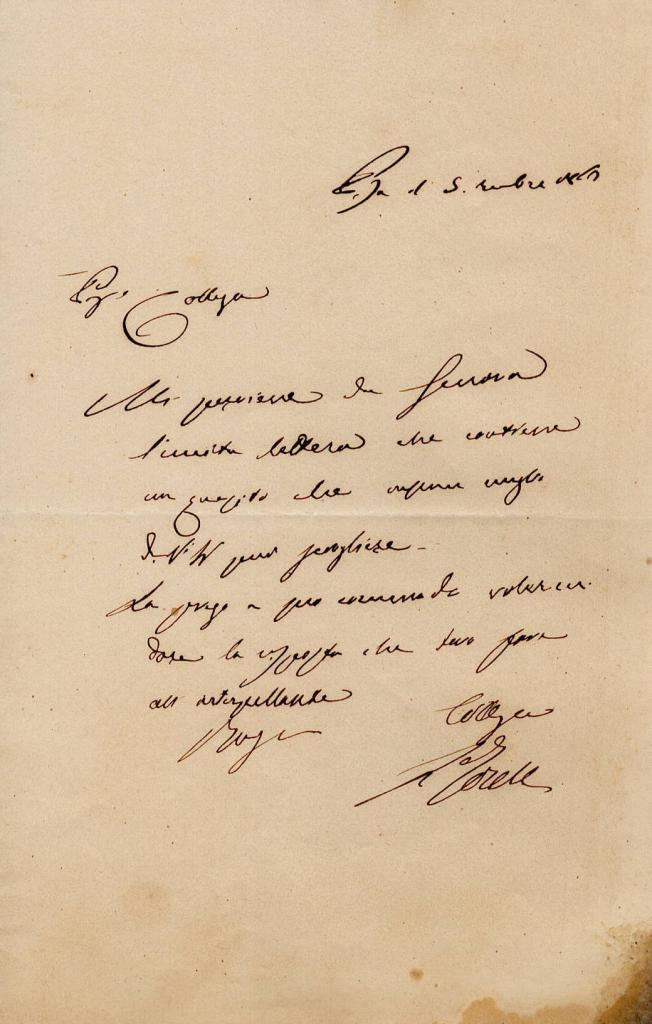 Pisa il 5.
Collega
Mi perviene da Genova
l'unita lettera che contiene
un quesito che nessuno meglio
di V. può sciogliere -
La prego a suo commodo volermi
dare la risposta che farò
all'interpellante
Collega